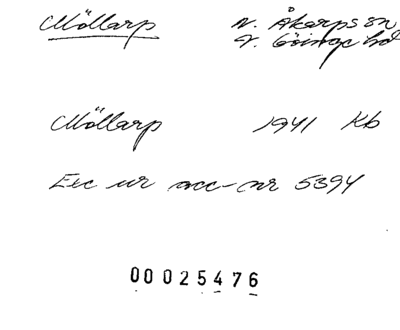 Möllarp N. Åkarps sn
V. Göinge hd
Möllarp 1941 Kb
Exc ur acc-nr 5394
00025476